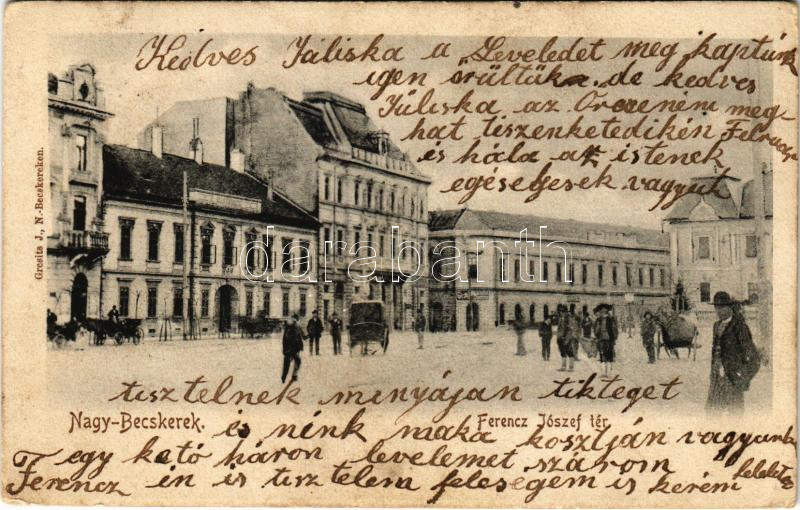 Kedves Júliska a Leveledet meg kaptunk
igen örültük de kedves
Júliska az Öreenem meg
hat tiszenketedikén Februar
és hála az istenek
egéségesek vagyuk
Grosits J., N.-Becskereken.
darabanth
tisztelnek minyájan tikteget
Nagy-Becskerek.
Ferencz József tér.
és nénk maka kosztján vagyunk
egy kató háron levelemet szárom
Ferencz én is tisztelem feleségem is kérem feleletet